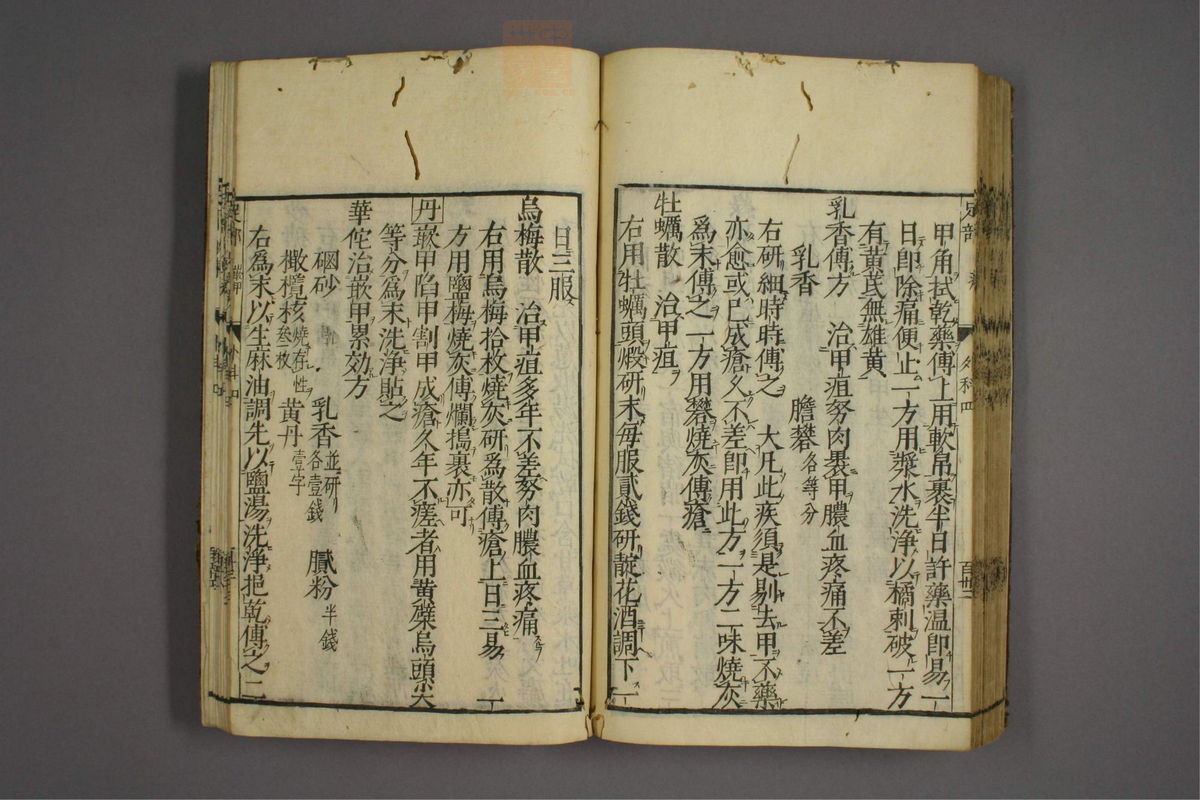 甲角拭乾藥傅上用軟帛裹半日許藥温即易一
日即除痛便止一方用漿水洗淨以橘刺破一方
有黃芪無雄黃
乳香傅方 治甲疽努肉裹甲膿血疼痛不差
乳香 膽礬各等分
右研細時時傅之 大凡此疾須是剔去甲不藥
亦愈或已成瘡久不差即用此方一方二味燒灰
爲末傅之一方用礬燒灰傅瘡
牡蠣散 治甲疽
右用牡蠣頭煅研末每服貳錢研靛花酒調下一
日三服
烏梅散 治甲疽多年不差努肉膿血疼痛
右用烏梅拾枚燒灰研爲散傅瘡上日三易 一
方用鹽梅燒灰傅爛搗裹亦可
丹 嵌甲陷甲割甲成瘡久年不瘥者用黃蘗烏頭尖
等分爲末洗淨貼之
華佗治嵌甲累効方
硇砂 乳香並研各壹錢 膩粉半錢
橄欖核燒存性叁枚 黃丹壹字
右爲末以生麻油調先以鹽湯洗淨挹乾傅之二
足部
外科四
百卌二